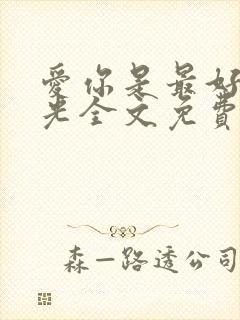 愛你是最好
光全文免費
森—路透公司